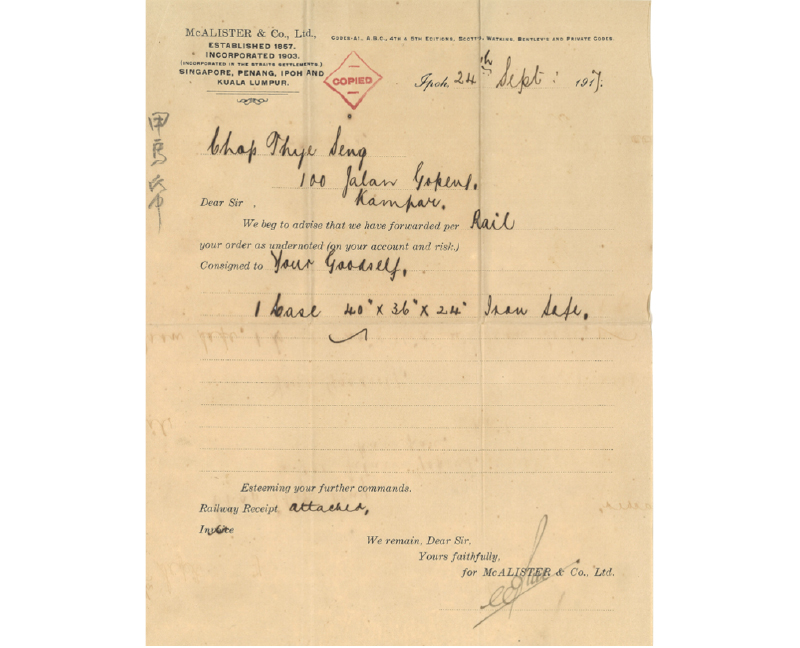 McALISTER & Co., Ltd.,
ESTABLISHED 1857.
INCORPORATED 1903.
(INCORPORATED IN THE STRAITS SETTLEMENTS.)
SINGAPORE, PENANG, IPOH AND
KUALA LUMPUR.
CODES-A1., A.B.C., 4TH & 5TH EDITIONS, SCOTT'S, WATKINS, BENTLEY'S AND PRIVATE CODES.
COPIED
Ipoh, 24th Sept: 1917.
Chop Thye Seng
100 Jalan Gopeng,
Kampar.
Dear Sir,
We beg to advise that we have forwarded per Rail
your order as undernoted (on your account and risk.)
Consigned to Your Goodself.
1 Case 40" x 36" x 24" Iron Safe.
Esteeming your further commands.
Railway Receipt attached,
Invoice
We remain, Dear Sir,
Yours faithfully,
for McALISTER & Co., Ltd.